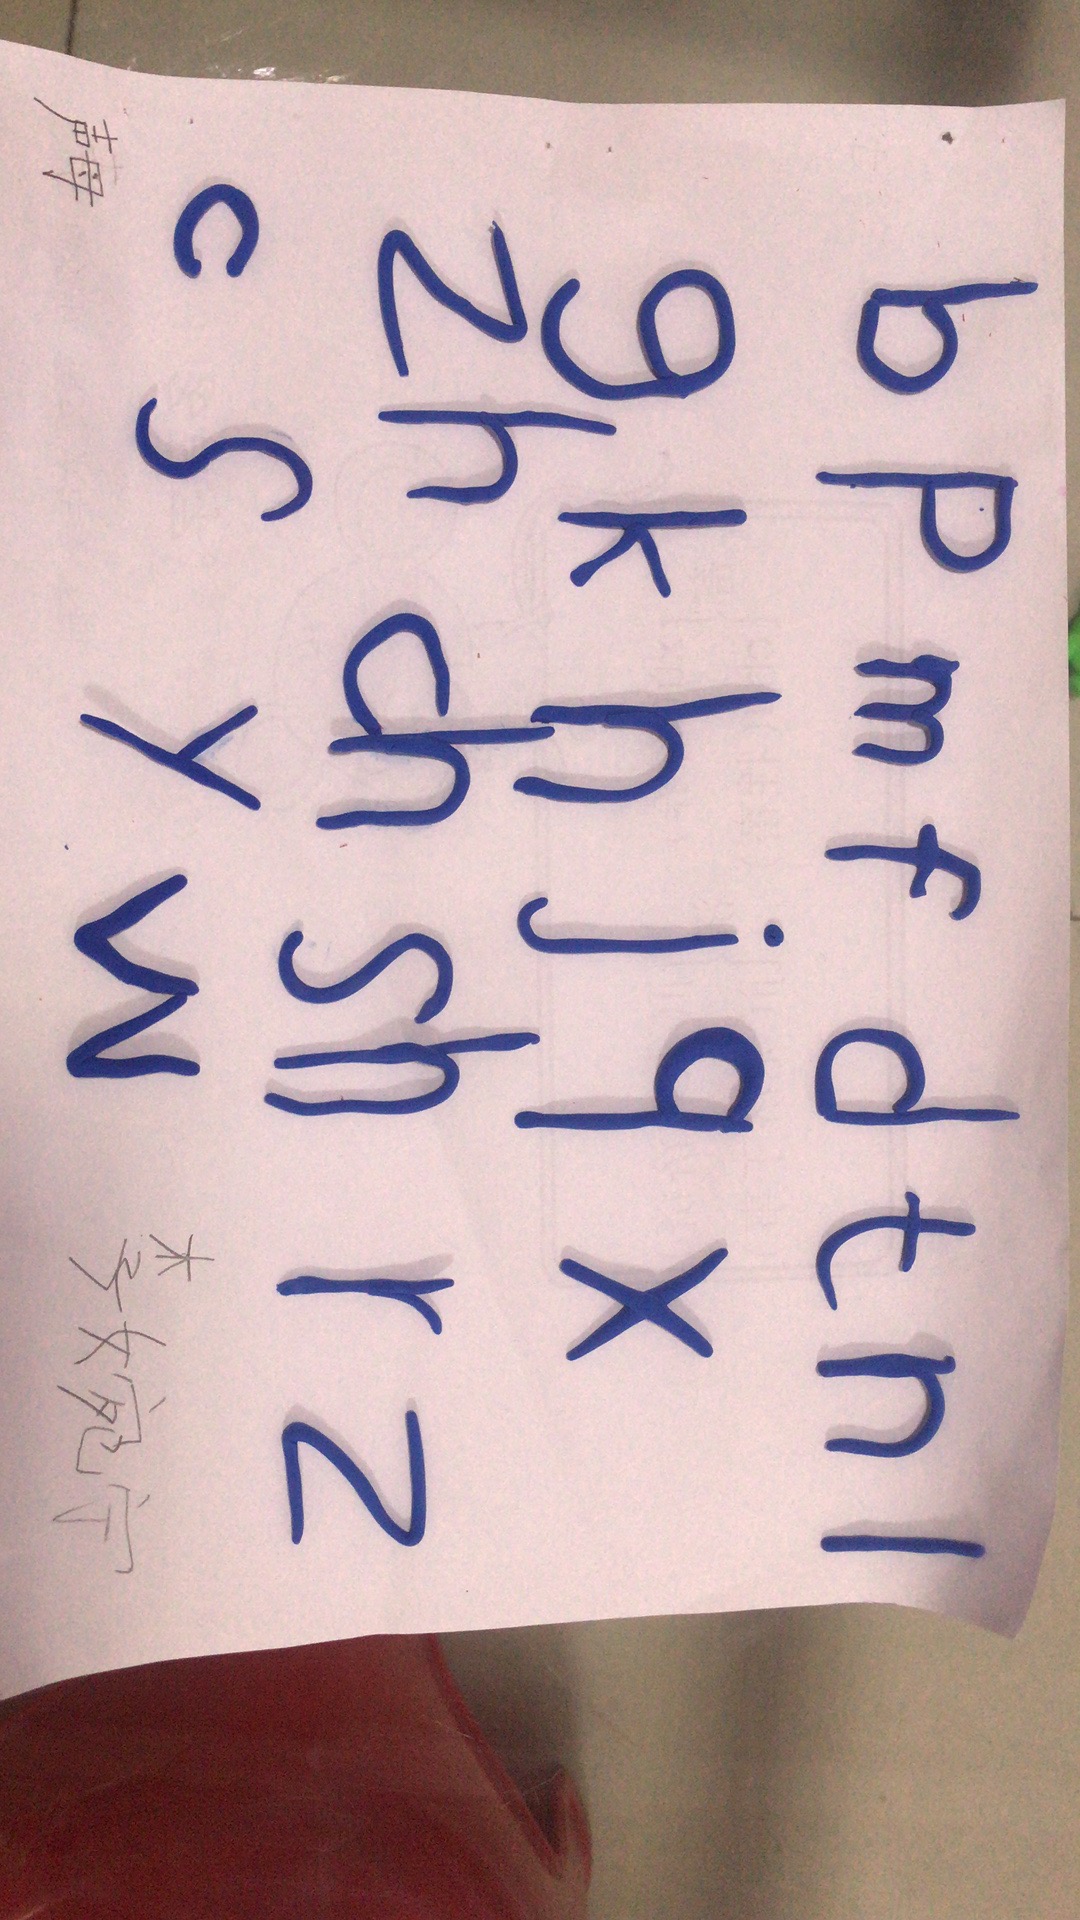 b p m f d t n l
g k h j q x
zh ch sh r z
c s y w
声母